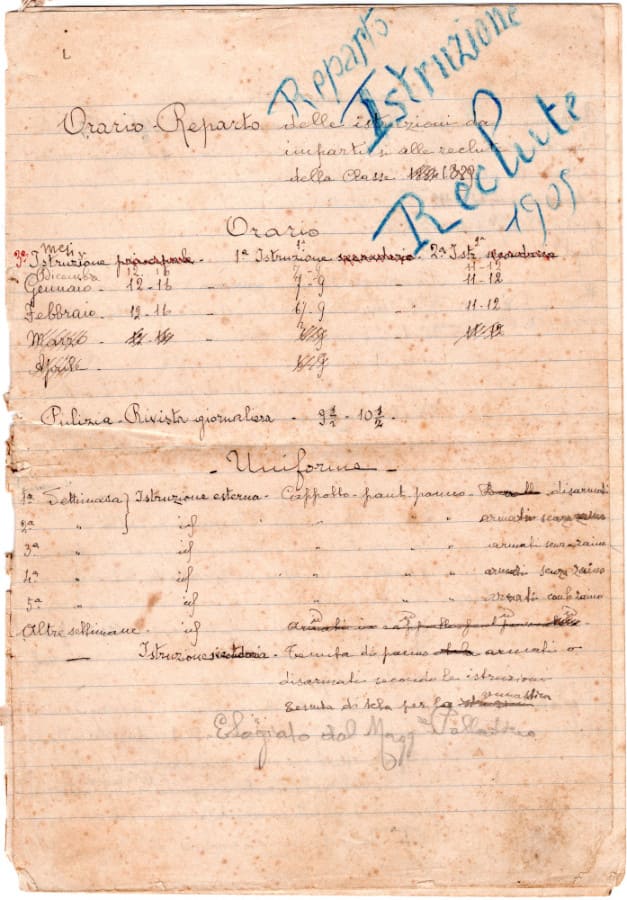 Reparto
Istruzione
Reclute
1909
Orario-Reparto delle istruzioni da
impartirsi alle reclute
della Classe 1889
Orario
mesi
Istruzione principale - 1ª Istruzione - 2ª Istr.
Dicembre 12-16 7-9 11-12
Gennaio - 12-16 " 7-9 " 11-12
Febbraio - 12-16 " 9 " 11-12
Marzo " "
Aprile -
Pulizia - Rivista giornaliera - 9 1/2 - 10 1/2 -
- Uniforme -
1ª Settimana } Istruzione esterna - Cappotto - pant. panno - disarmati
2ª " id " " " armati senza zaino
3ª " id " " " armati senza zaino
4ª " id " " " armati senza zaino
5ª " id " " " con lo zaino
Altre settimane - id armati in cappotto
— Istruzione - Tenuta di panno armati o
disarmati secondo le istruzioni
tenuta di tela per la ginnastica
Elogiato dal Magg.